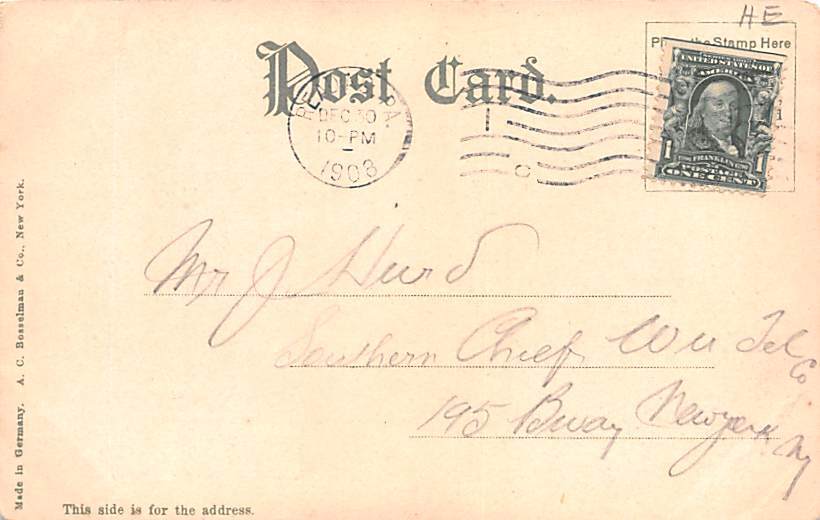 HE
Place the Stamp Here
Post Card.
UNITED STATES OF
AMERICA
1 FRANKLIN 1
POSTAGE
ONE CENT
PA.
DEC 30
10-PM
1903
Mr J Hurd
Southern Chief W U Tel
Co
195 Bway Newyork
Ny
This side is for the address.
Made in Germany. A. C. Bosselman & Co., New York.